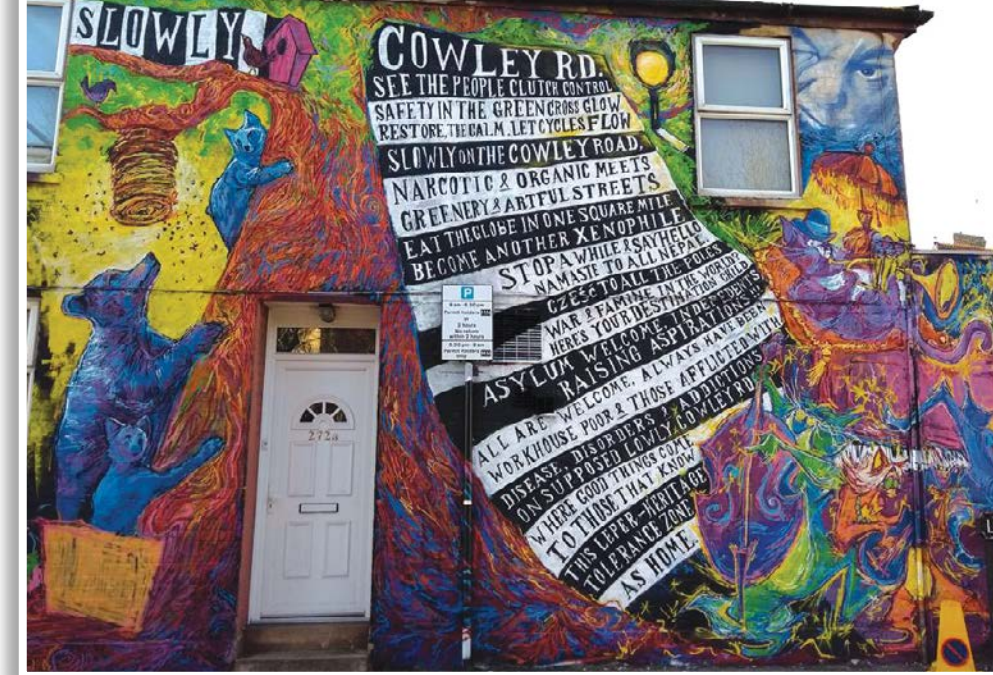 SLOWLY
COWLEY RD.
SEE THE PEOPLE CLUTCH CONTROL
SAFETY IN THE GREEN CROSS GLOW
RESTORE, THE CALM. LET CYCLES FLOW
SLOWLY ON THE COWLEY ROAD.
NARCOTIC & ORGANIC MEETS
GREENERY & ARTFUL STREETS
EAT THE GLOBE IN ONE SQUARE MILE
BECOME ANOTHER XENOPHILE
STOP A WHILE & SAY HELLO
NAMASTE TO ALL NEPAL
CZEŚĆ TO ALL THE POLES
WAR & FAMINE IN THE WORLD?
HERE'S YOUR DESTINATION CHILD
ASYLUM WELCOME, INDEPENDENTS,
RAISING ASPIRATIONS
ALL ARE WELCOME, ALWAYS HAVE BEEN
WORKHOUSE POOR & THOSE AFFLICTED WITH
DISEASE, DISORDERS & ADDICTIONS
ON SUPPOSED LOWLY, COWLEY RD
WHERE GOOD THINGS COME
TO THOSE THAT KNOW
THIS LEPER-HERITAGE
TOLERANCE ZONE
AS HOME.
P
Permit holders
or
2 hours
No return
within 2 hours
Permit holders
only
272a